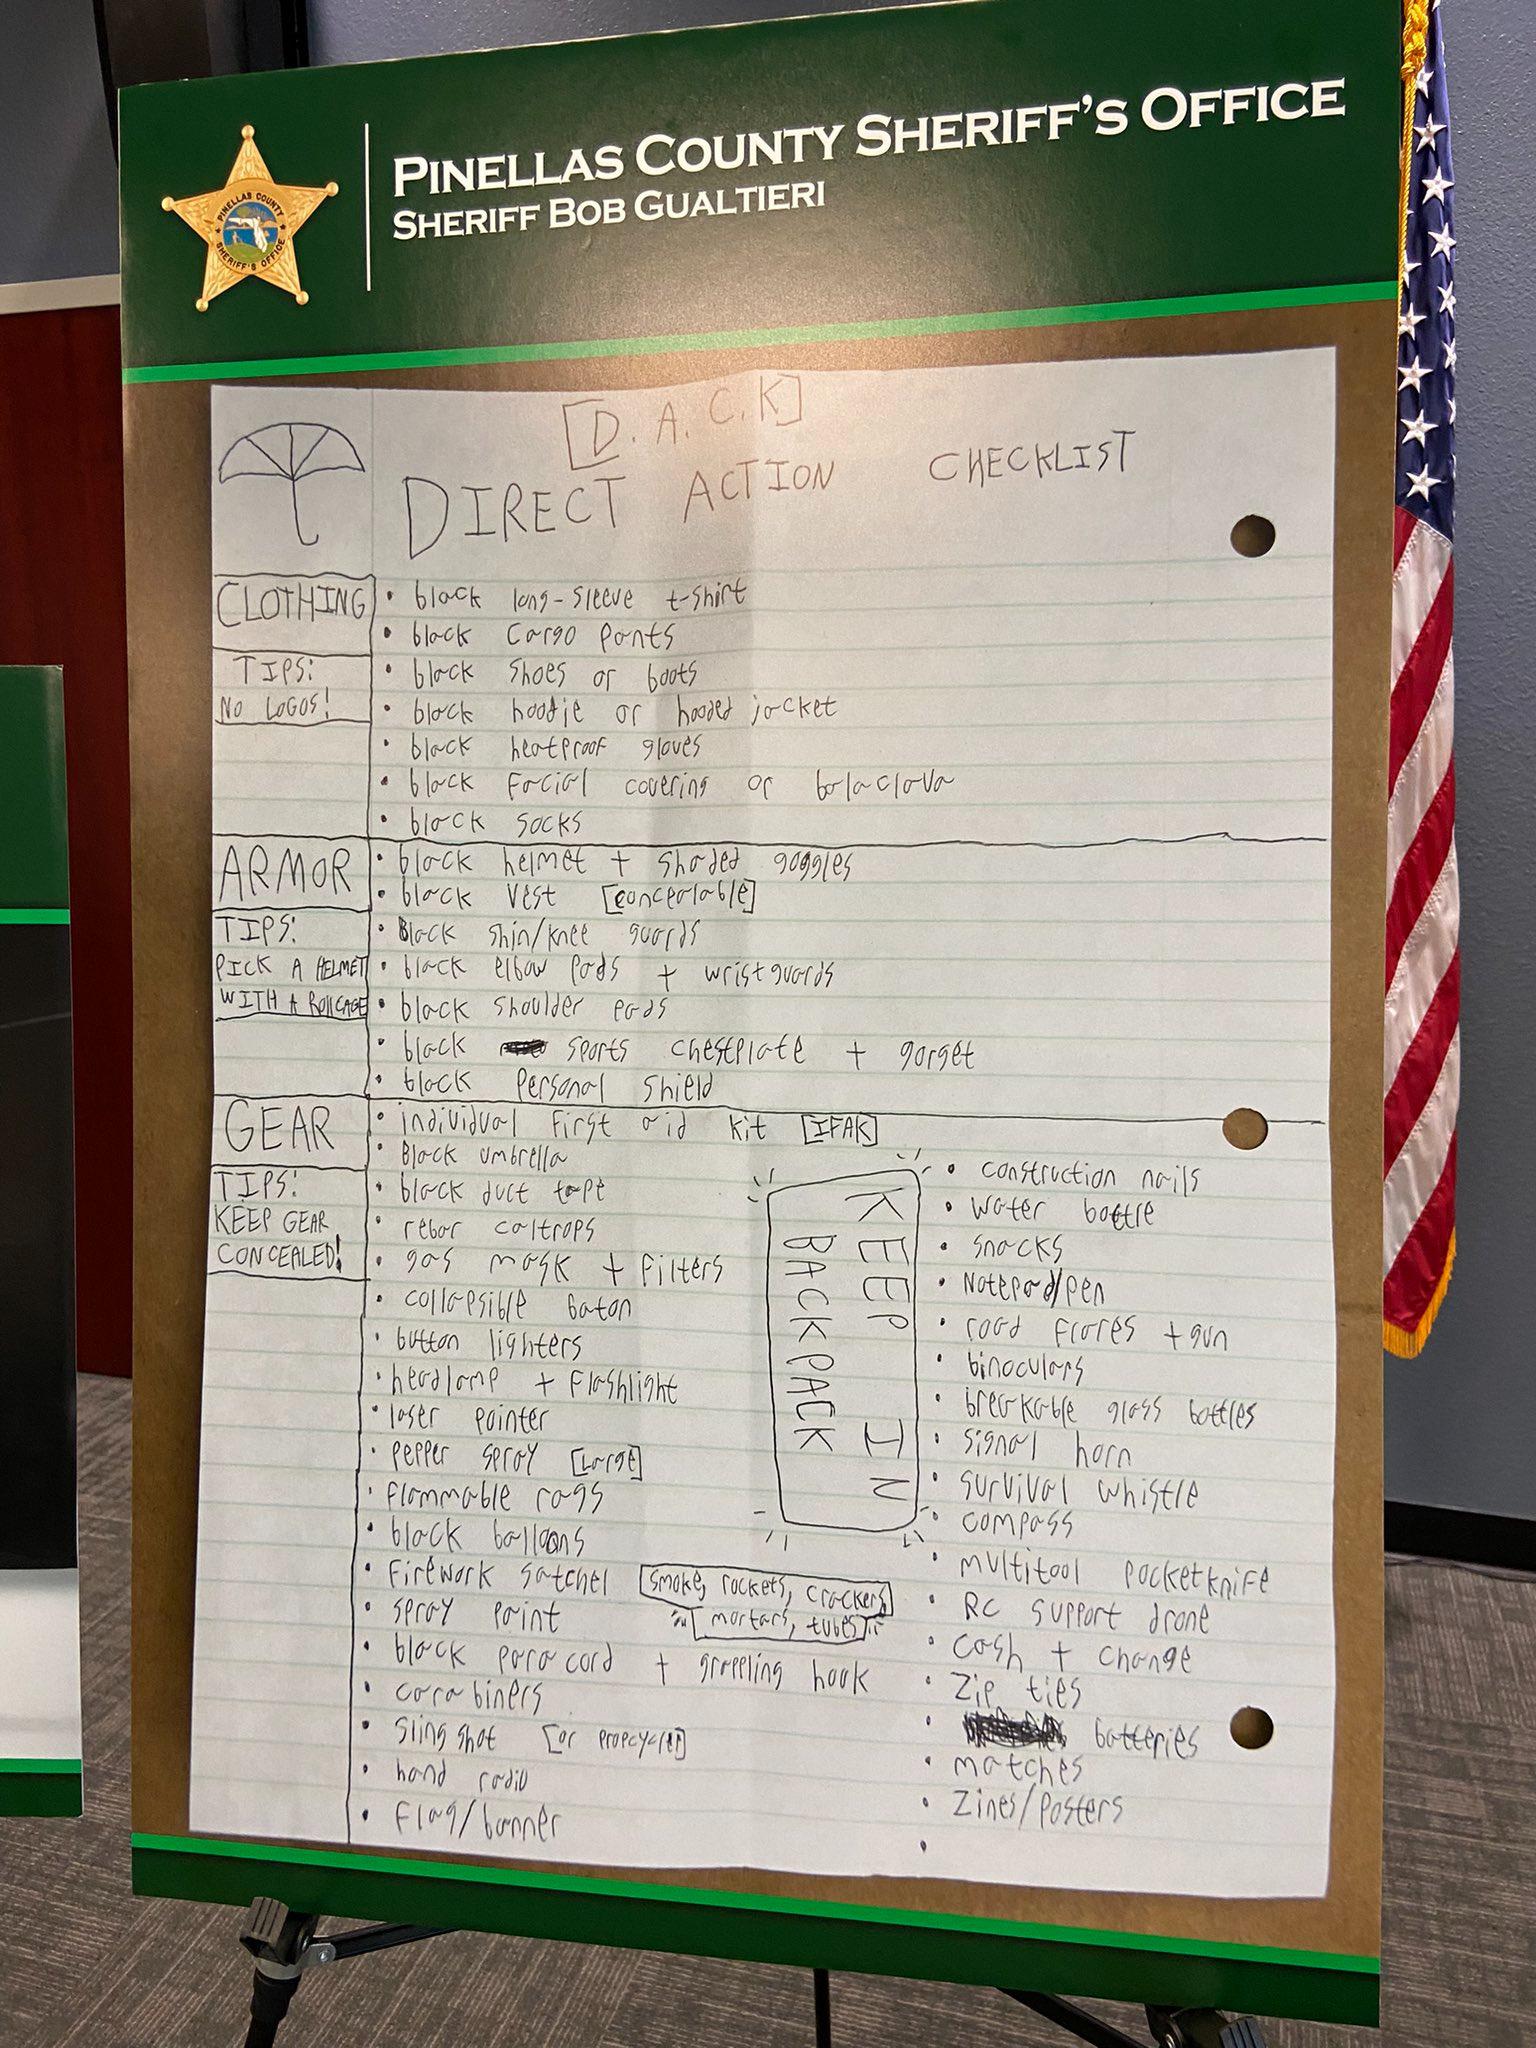 PINELLAS COUNTY SHERIFF'S OFFICE
SHERIFF BOB GUALTIERI
PINELLAS COUNTY
SHERIFF'S OFFICE
[D.A.C.K]
DIRECT ACTION CHECKLIST
CLOTHING
TIPS:
NO LOGOS!
• black long-sleeve t-shirt
• black cargo pants
• black shoes or boots
• black hoodie or hooded jacket
• black heatproof gloves
• black facial covering or balaclava
• black socks
ARMOR
TIPS:
PICK A HELMET
WITH A ROLLCAGE
• black helmet + shaded goggles
• black vest [concealable]
• Black shin/knee guards
• black elbow pads + wristguards
• black shoulder pads
• black sports chestplate + gorget
• black personal shield
GEAR
TIPS:
KEEP GEAR
CONCEALED!
• individual first aid kit [IFAK]
• Black umbrella
• black duct tape
• rebar caltrops
• gas mask + filters
• collapsible baton
• button lighters
• headlamp + flashlight
• laser pointer
• pepper spray [Large]
• flammable rags
• black balloons
• firework satchel [smoke, rockets, crackers,
mortars, tubes]
• spray paint
• black paracord + grappling hook
• carabiners
• slingshot [or
• hand radio
• flag/banner
KEEP IN
BACKPACK
• construction nails
• water bottle
• snacks
• Notepad/pen
• road flares + gun
• binoculars
• breakable glass bottles
• signal horn
• survival whistle
• compass
• multitool pocketknife
• RC support drone
• cash + change
• zip ties
• batteries
• matches
• zines/posters
•